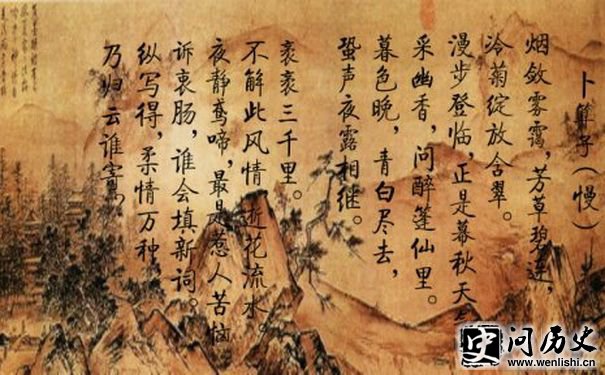 卜算子(慢)
烟敛雾霭，芳草碧连，
冷菊绽放含翠。
漫步登临，正是暮秋天
采幽香，问醉篷仙里。
暮色晚，青白尽去，
蛩声夜露相继。
衮衮三千里。
不解此风情 逝花流水。
夜静鸯啼，最是惹人苦恼
诉衷肠，谁会填新词。
纵写得，柔情万种
乃归云谁字？
史 问历史
www.wenlishi.cn